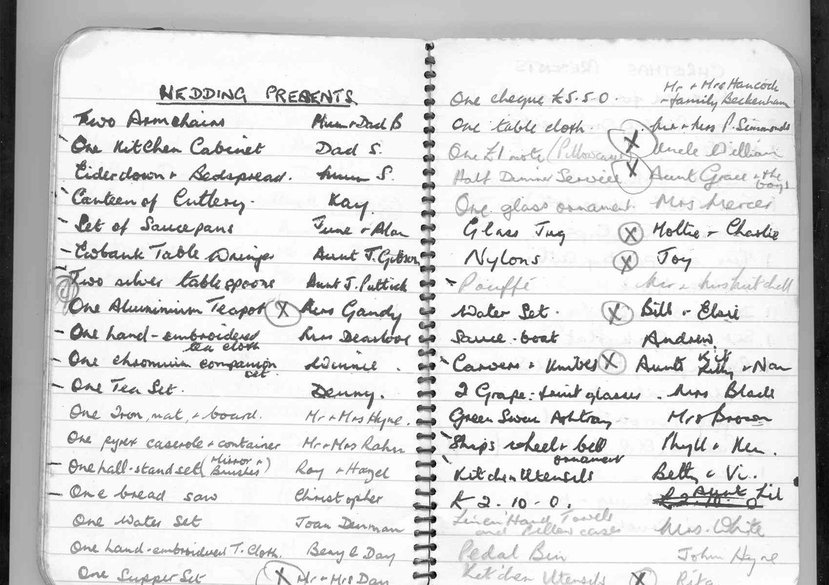 WEDDING PRESENTS
Two Armchairs Mum + Dad B
One Kitchen Cabinet Dad S.
Eiderdown + Bedspread. Mum S.
Canteen of Cutlery. Kay.
Set of Saucepans June + Alan
Ewbank Table Wringer Aunt J. Gibson
Two silver tablespoons Aunt J. Puttick
One Aluminium Teapot X Mrs Gandy
One hand-embroidered tea cloth Mrs Dearlove
One chromium companion set. Winnie.
One Tea Set. Denny.
One Iron, mat, + board. Mr + Mrs Hyne.
One pyrex caserole + container Mr + Mrs Rahn
One hall-stand set (Mirror + Brushes) Ray + Hazel
One bread saw Christopher
One Water Set Joan Denman
One hand-embroidered T. Cloth. Beryl Day
One Supper Set X Mr + Mrs Dan
One cheque £5.5.0. Mr + Mrs Hancock + family Beckenham
One table cloth. Mr + Mrs P. Simmonds
One £1 note (Pillowcases X Uncle William
Half Dinner Service X Aunt Grace + the boys
One glass ornament Mrs Mercer
Glass Jug X Mollie + Charlie
Nylons X Joy
Pouffé Mr + Mrs Mitchell
Water Set. X Bill + Elsie
Sauce-boat Andrew.
Carvers + Knives X Aunts Kit + Nan
2 Grape-fruit glasses. Mrs Blade
Green Swan Ashtray Mrs Brown
Ship's wheel + bell ornament Phyll + Ken.
Kitchen Utensils Betty + Vi.
£ 2-10-0. Aunt Lil
Linen Hand Towels and Pillow cases Mrs. White
Pedal Bin John Hyne
Kitchen Utensils X Rita